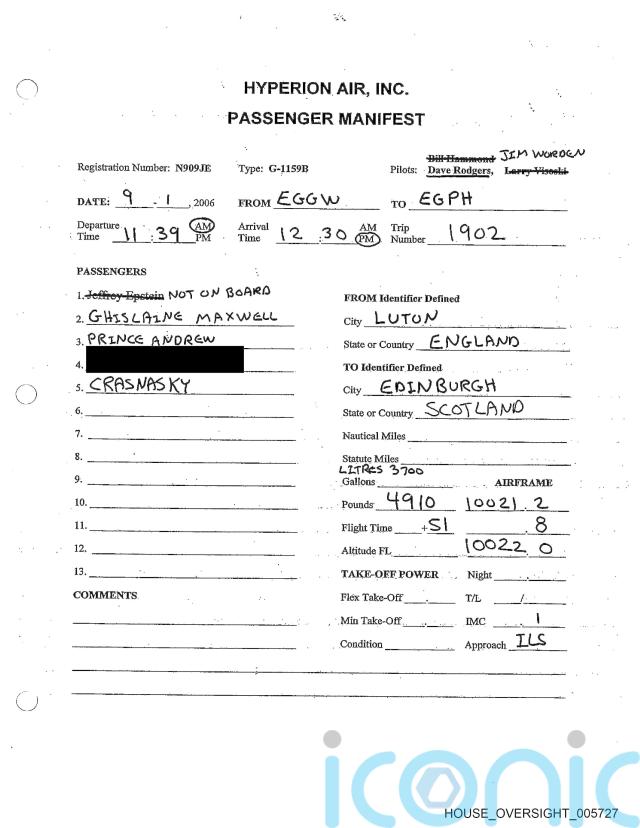 HYPERION AIR, INC.
PASSENGER MANIFEST
Registration Number: N909JE Type: G-1159B Pilots: Bill Hammond JIM WORDEN
Dave Rodgers, Larry Visoski
DATE: 9 . 1 , 2006 FROM EGGW TO EGPH
Departure Time 11 : 39 AM PM Arrival Time 12 : 30 AM PM Trip Number 1902
PASSENGERS
1. Jeffrey Epstein NOT ON BOARD
2. GHISLAINE MAXWELL
3. PRINCE ANDREW
4.
5. CRASNASKY
6.
7.
8.
9.
10.
11.
12.
13.
COMMENTS
FROM Identifier Defined
City LUTON
State or Country ENGLAND
TO Identifier Defined
City EDINBURGH
State or Country SCOTLAND
Nautical Miles
Statute Miles
LITRES 3700
Gallons AIRFRAME
Pounds 4910 10021 . 2
Flight Time +51 . 8
Altitude FL 10022 . 0
TAKE-OFF POWER Night
Flex Take-Off T/L /
Min Take-Off IMC . 1
Condition Approach ILS
iconic
HOUSE_OVERSIGHT_005727